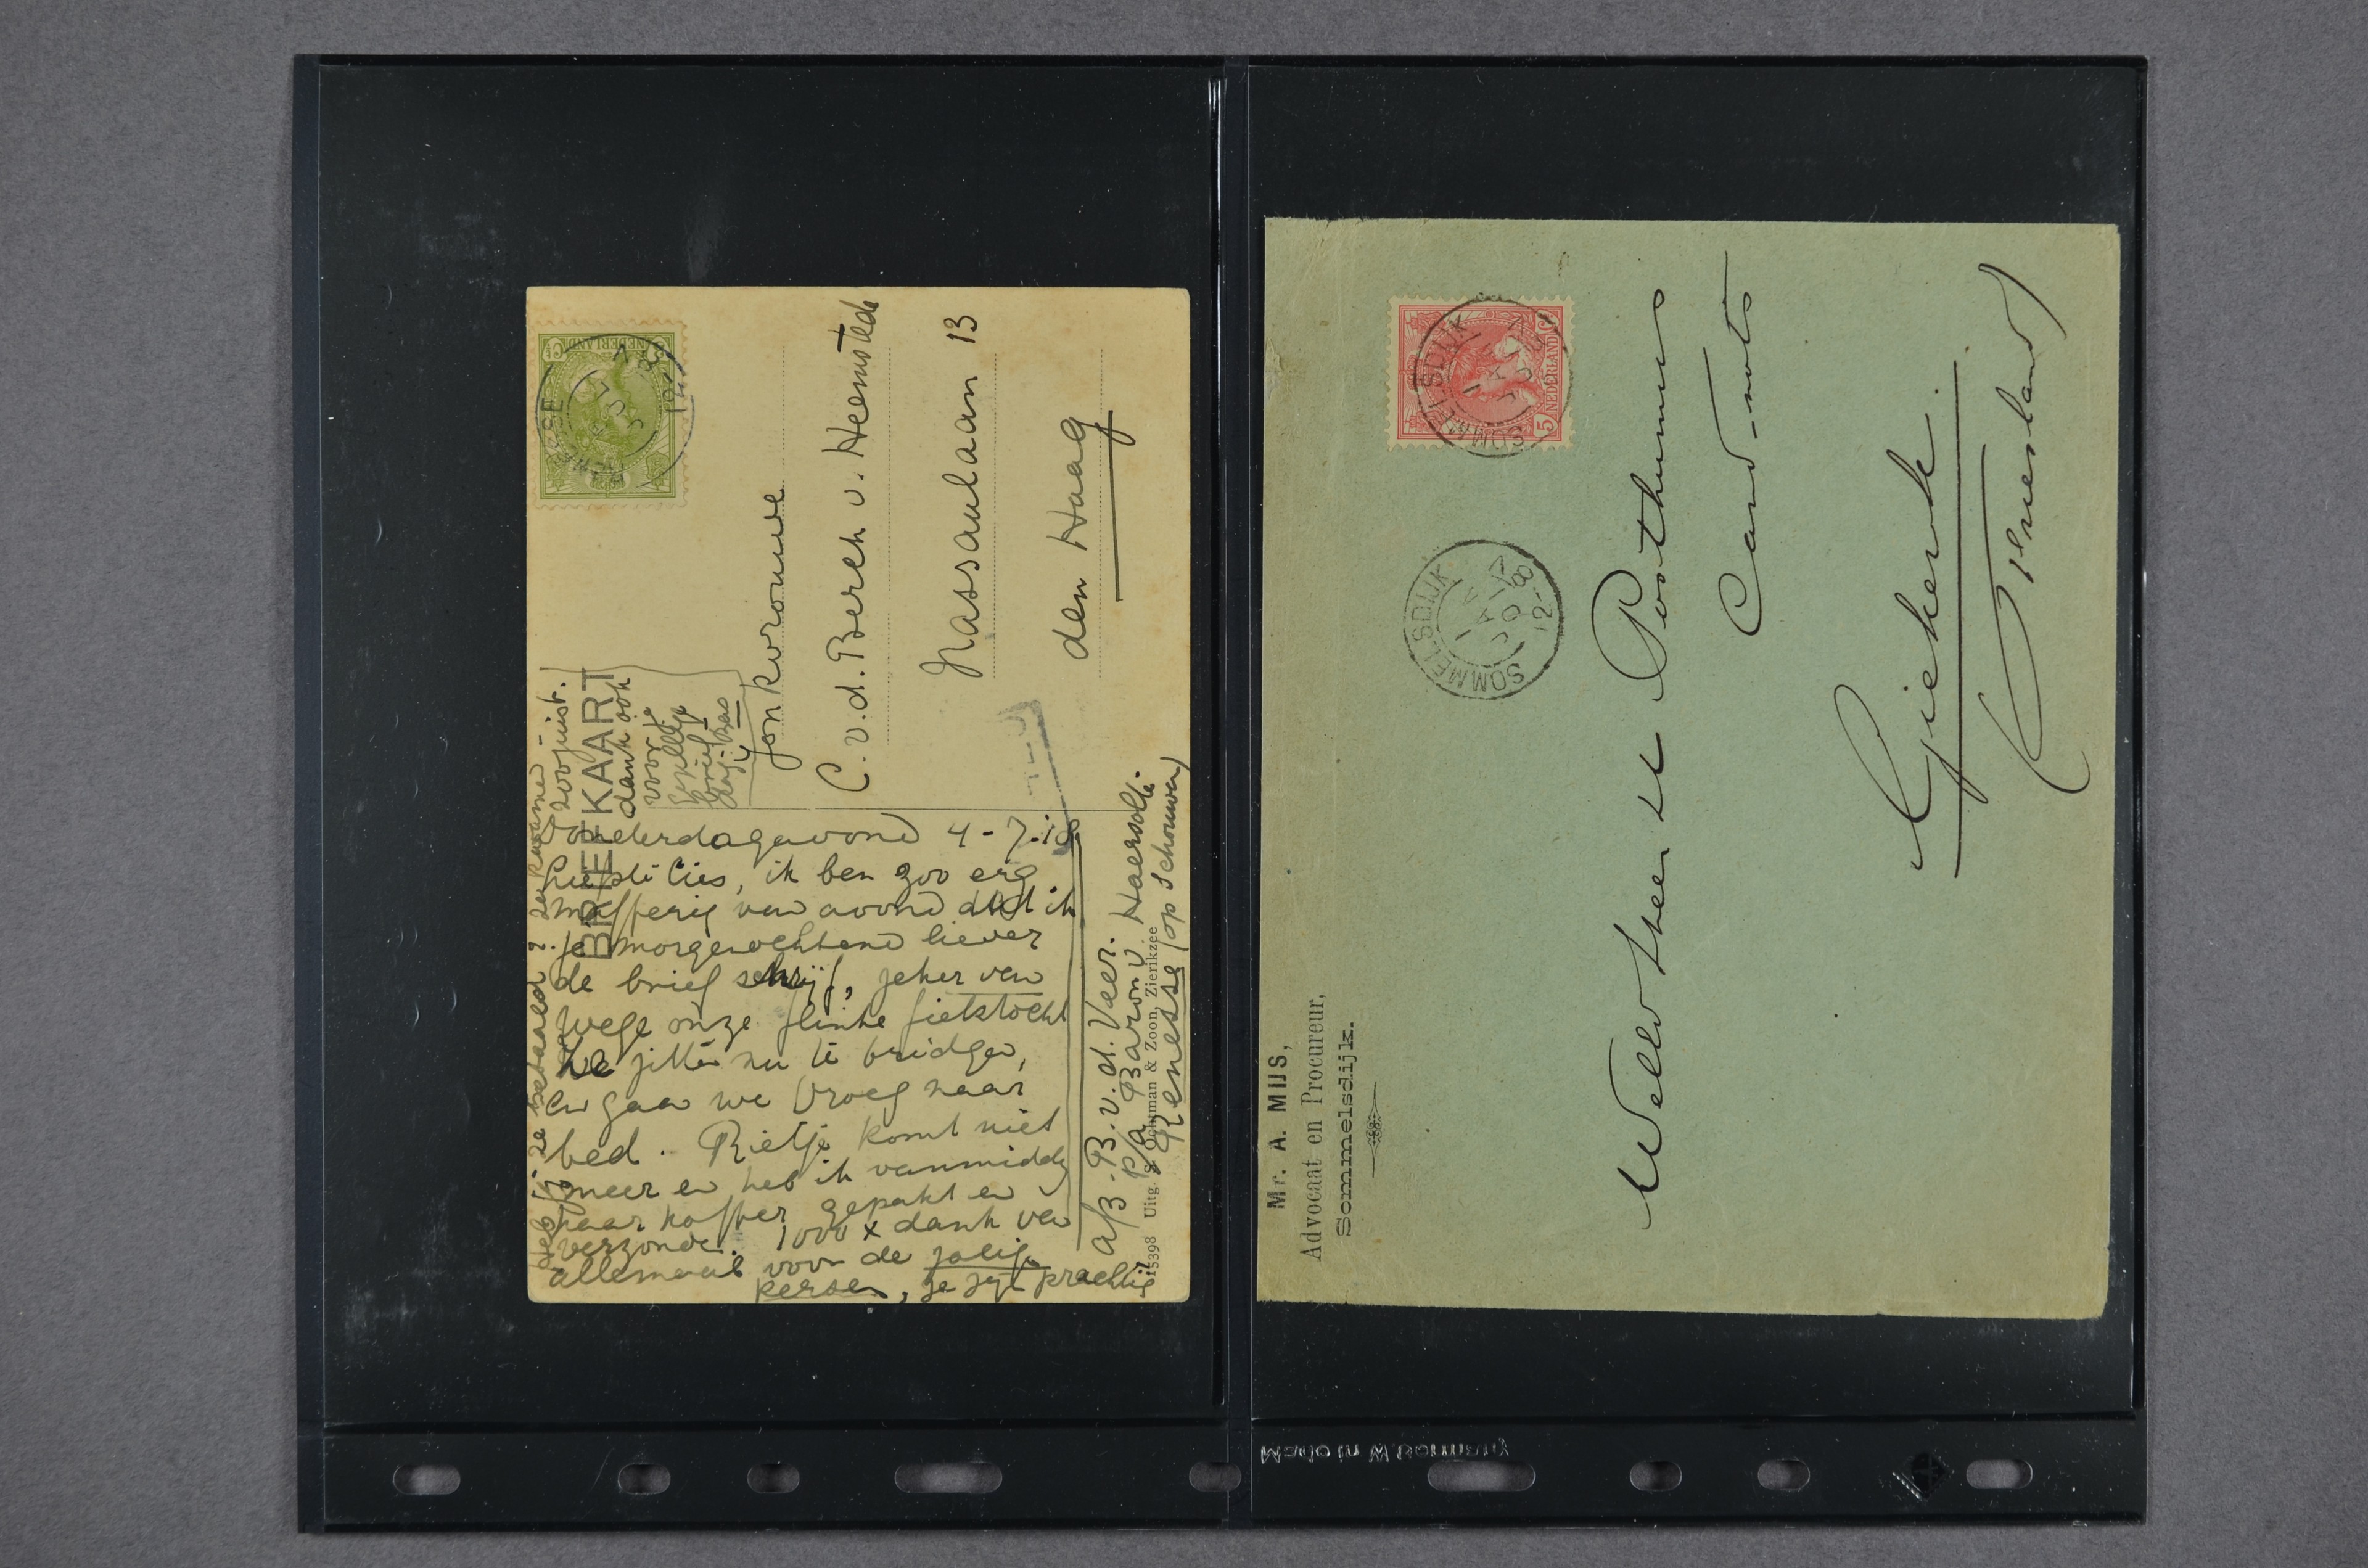 BRIEFKAART
dank ook
voor je
brief
NEDERLAND
Ct
RENESSE
5 JUL
1918
Jonkvrouwe
C. v.d. Berch v. Heemstede
Nassaulaan 13
den Haag
Donderdagavond 4-7-18
Liefste Cies, ik ben zoo erg
mofferig van avond dat ik
je morgenochtend liever
de brief schrijf, zeker van
wege onze flinke fietstocht
We zitten nu te bridgen,
en gaan we vroeg naar
bed. Rietje komt niet
meer en heb ik vanmiddg
haar koffer gepakt en
verzonden. 1000 x dank van
allemaal voor de zalige
kersen, ze zijn prachtig
zoo juist.
afz. B. v. d. Veer.
p/a Baron v. Haersolte.
Renesse (op Schouwen)
15398 Uitg. Ochtman & Zoon, Zierikzee
Mr. A. MIJS,
Advocaat en Procureur,
Sommelsdijk.
5 NEDERLAND Ct
SOMMELSDIJK
SOMMELSDIJK
12-8 N
WelEd Heer de Posthumus
Cand-nots
Giekerk.
(Friesland)
Made in W. Germany